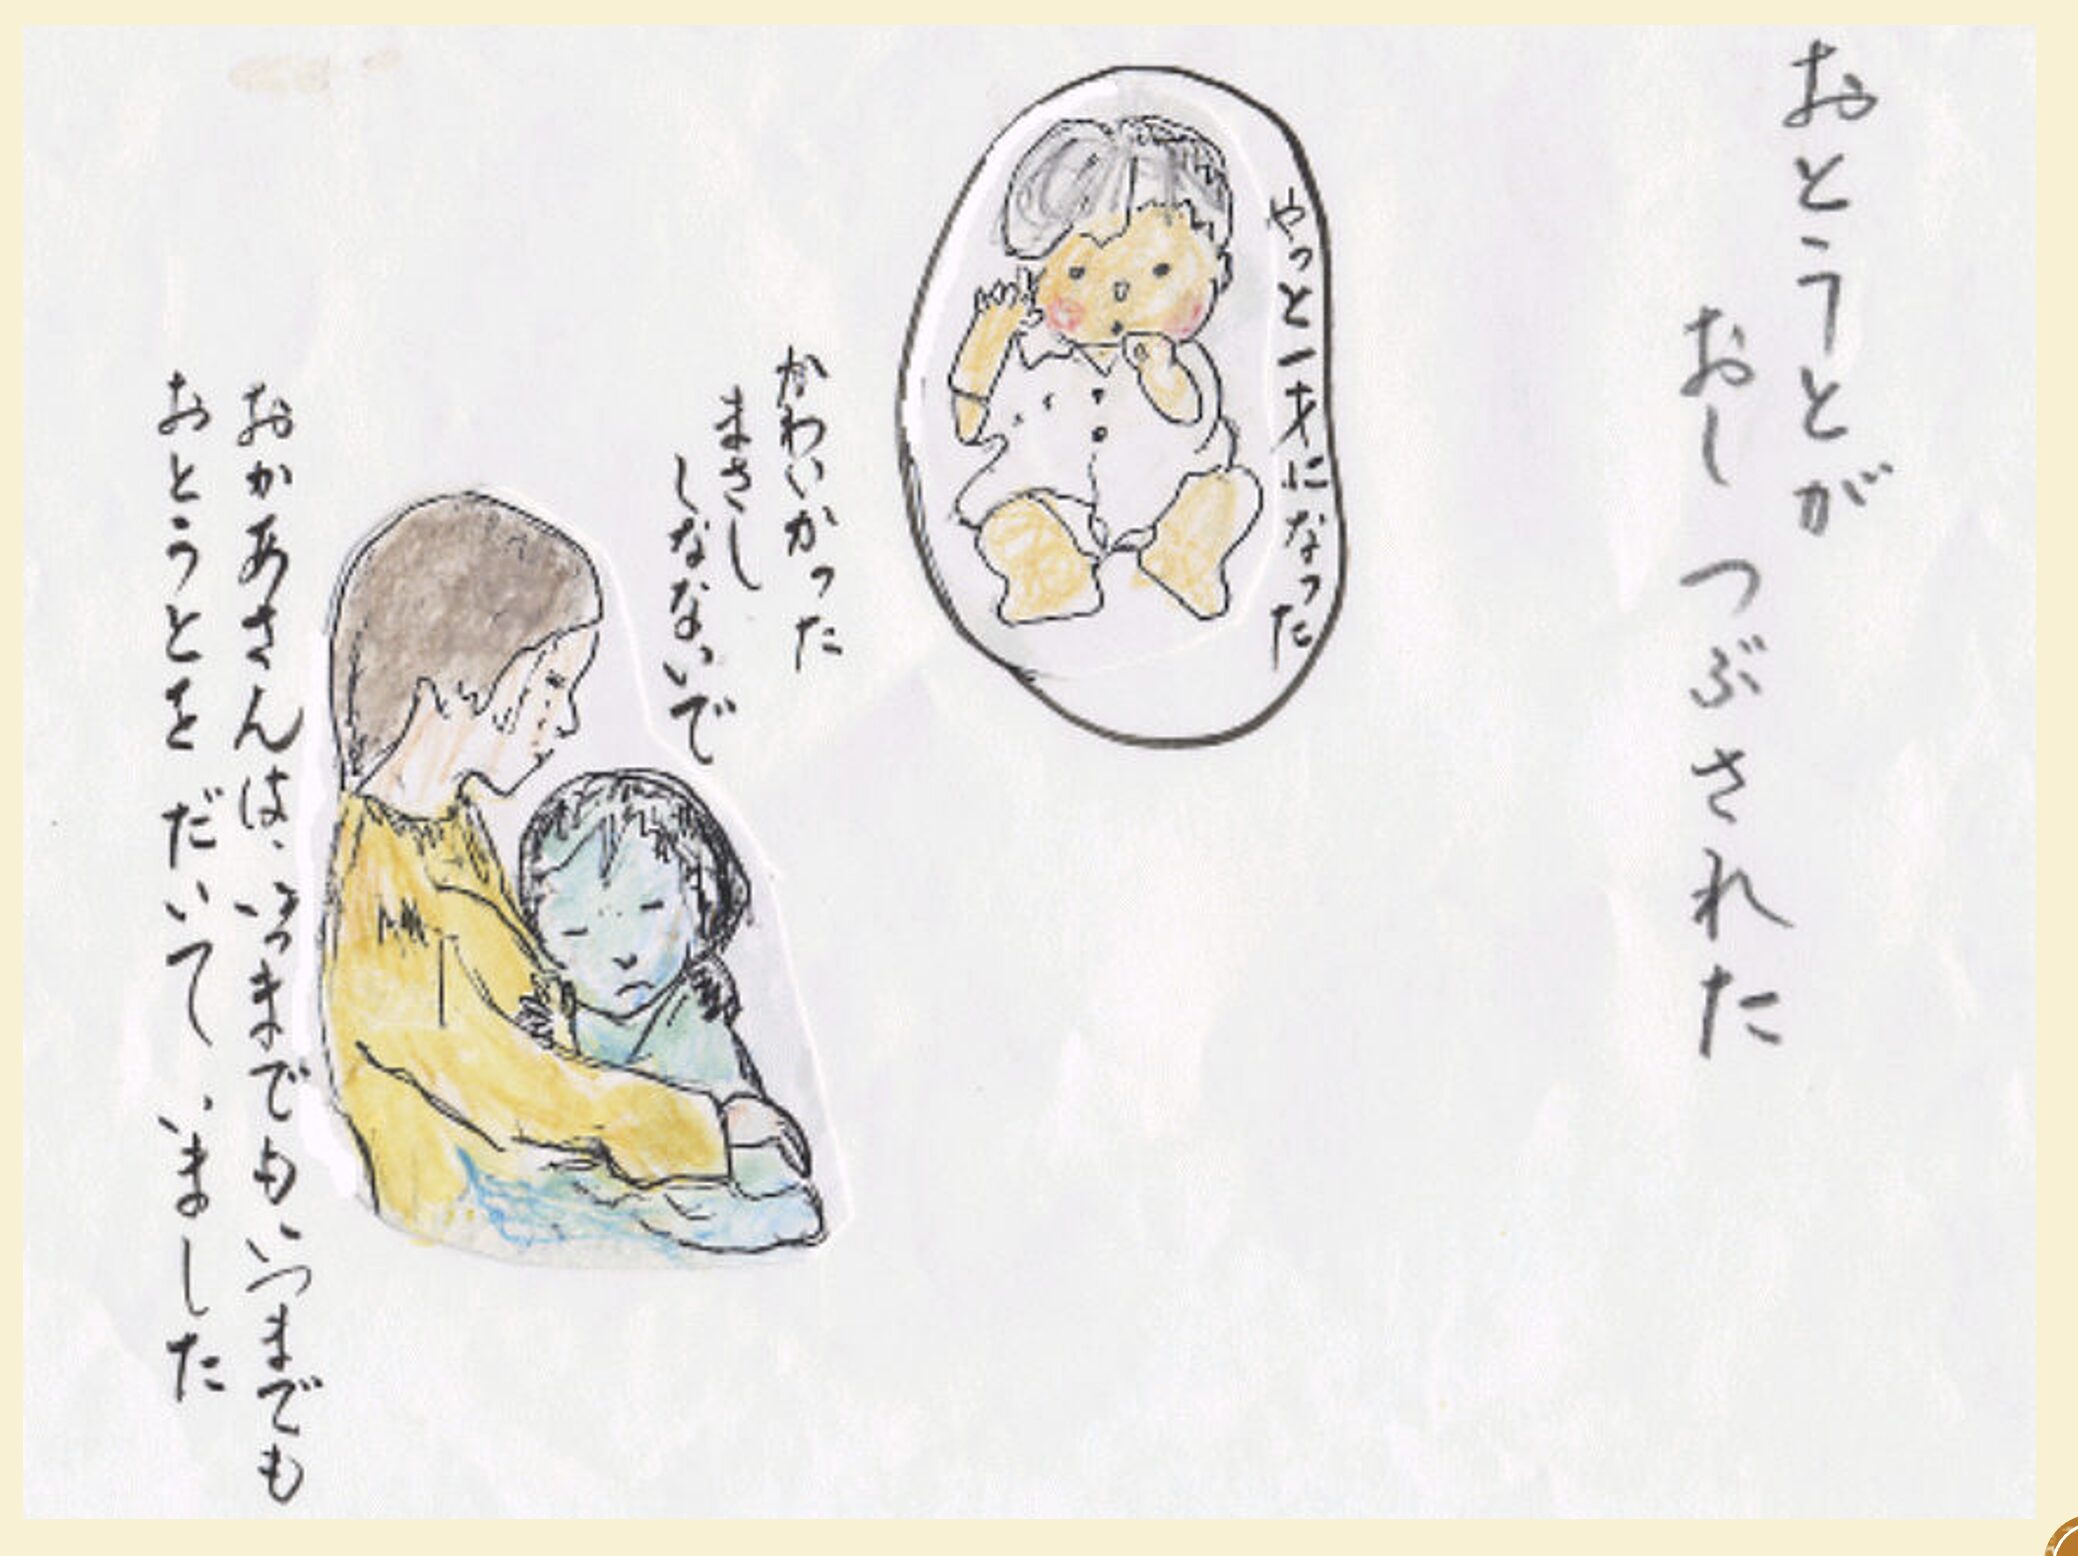 おとうとが
おし つぶされた
やっと一才になった
かわいかった
まさし
しなないで
おかあさんは、いつまでもいつまでも
おとうとを だいて いました